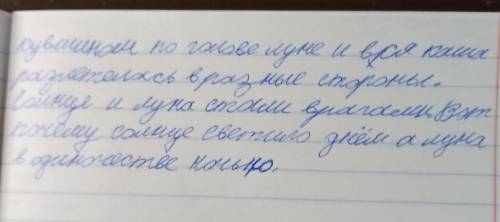 кувшином по голове луне и вся каша
разлеталась в разные стороны.
Солнце и луна стали врагами. Вот
почему солнце светило днём а луна
в одиночестве ночью.